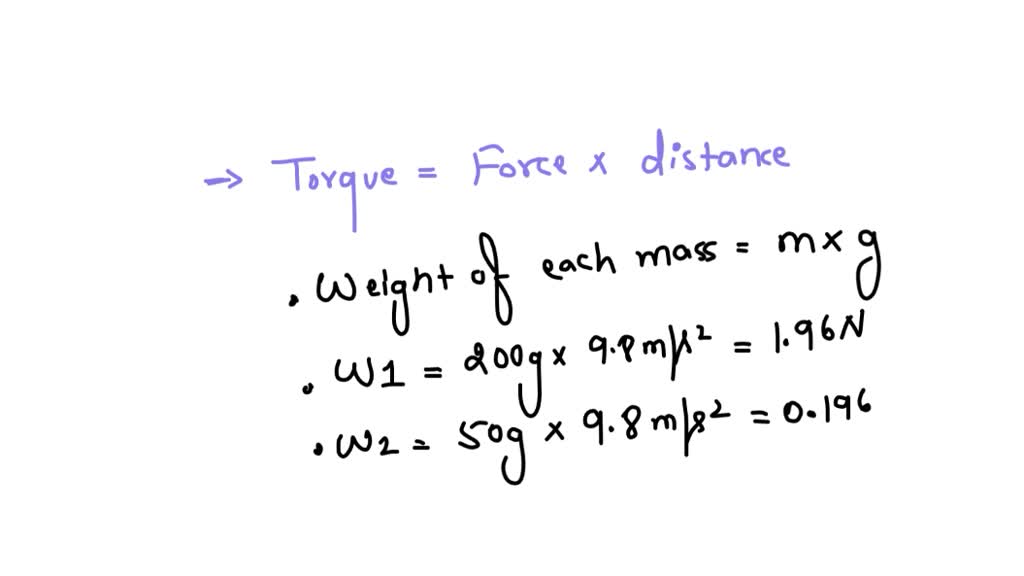 → Torque = Force × distance
. Weight of each mass = m × g
. W1 = 200g × 9.8 m/s² = 1.96N
. W2 = 50g × 9.8 m/s² = 0.196